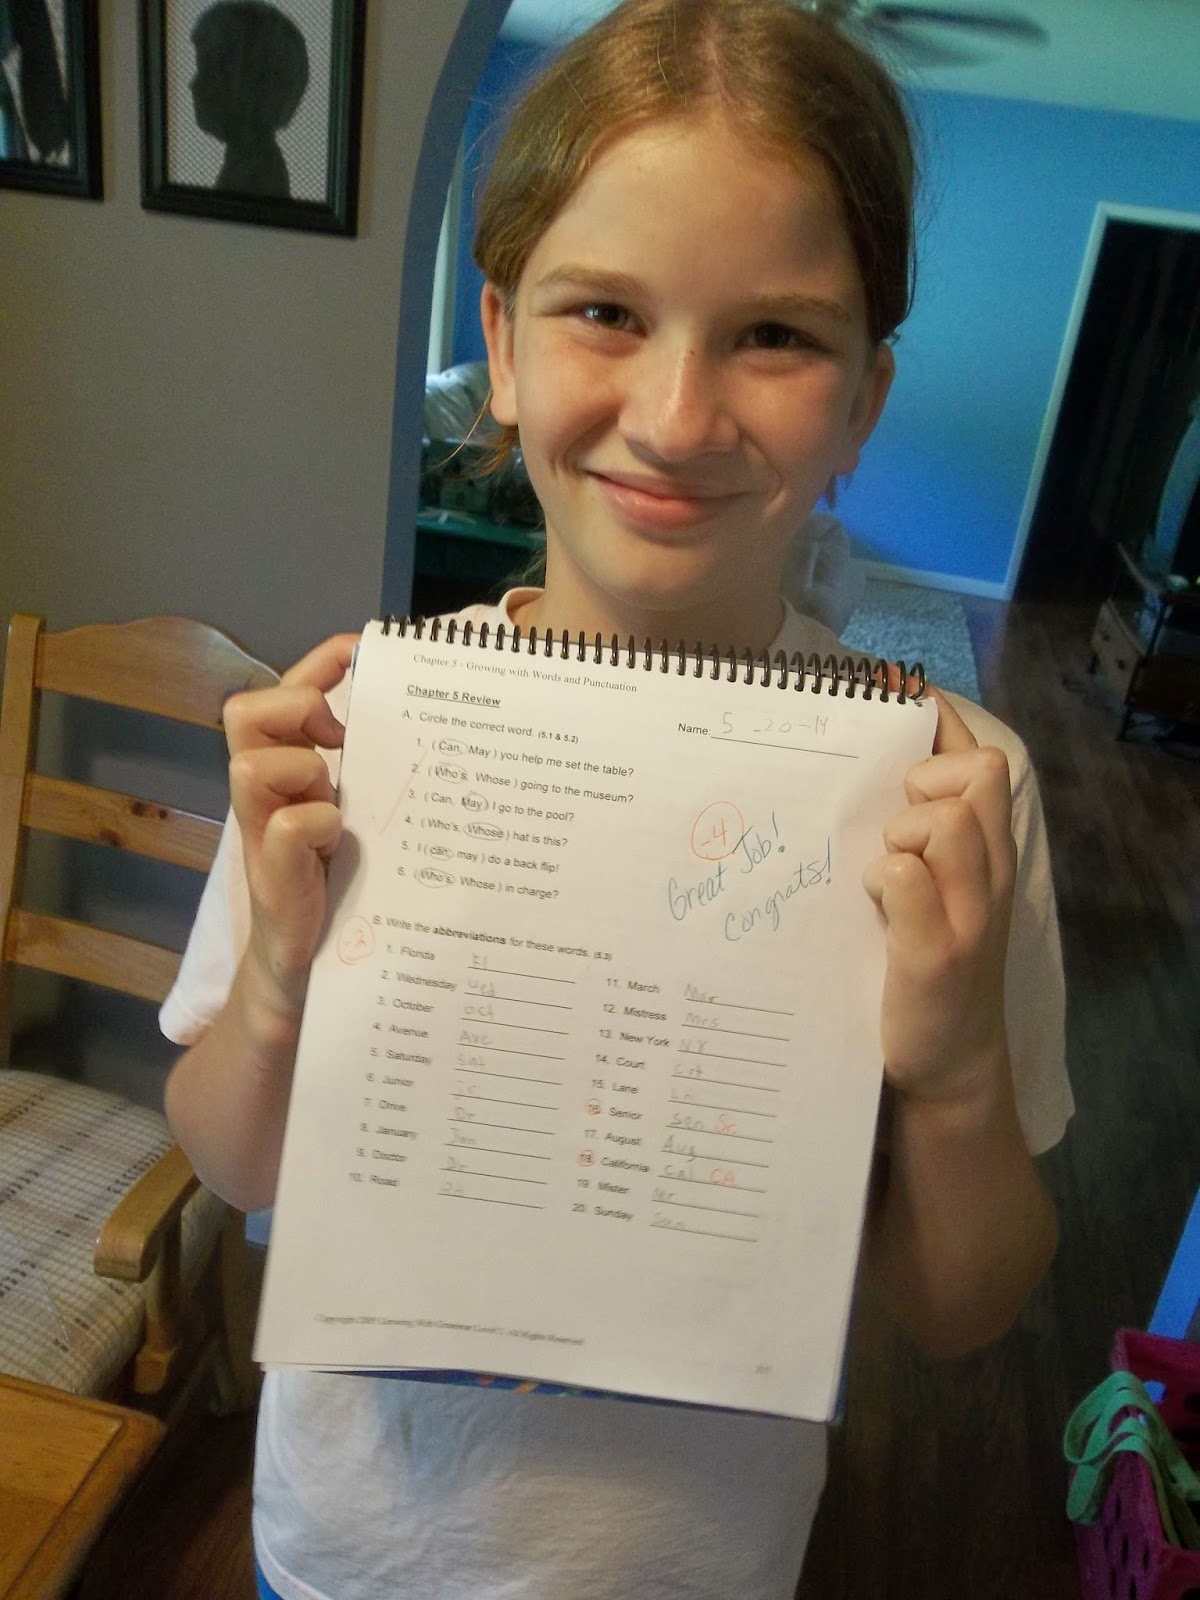 Chapter 5 - Growing with Words and Punctuation
Chapter 5 Review
Name: 5-20-14
A. Circle the correct word. (5.1 & 5.2)
1. ( Can, May ) you help me set the table?
2. ( Who's, Whose ) going to the museum?
3. ( Can, May ) I go to the pool?
4. ( Who's, Whose ) hat is this?
5. I ( can, may ) do a back flip!
6. ( Who's, Whose ) in charge?
-4
Great Job!
Congrats!
-2
B. Write the abbreviations for these words. (5.3)
1. Florida Fl
2. Wednesday Wed
3. October oct
4. Avenue Ave
5. Saturday Sat
6. Junior Jr.
7. Drive Dr
8. January Jan
9. Doctor Dr
10. Road
11. March Mar
12. Mistress Mrs
13. New York NY
14. Court Crt
15. Lane Ln
16. Senior Sen Sr.
17. August Aug
18. California Cal CA
19. Mister Mr
20. Sunday Sun
Growing With Grammar Level 2 All Rights Reserved